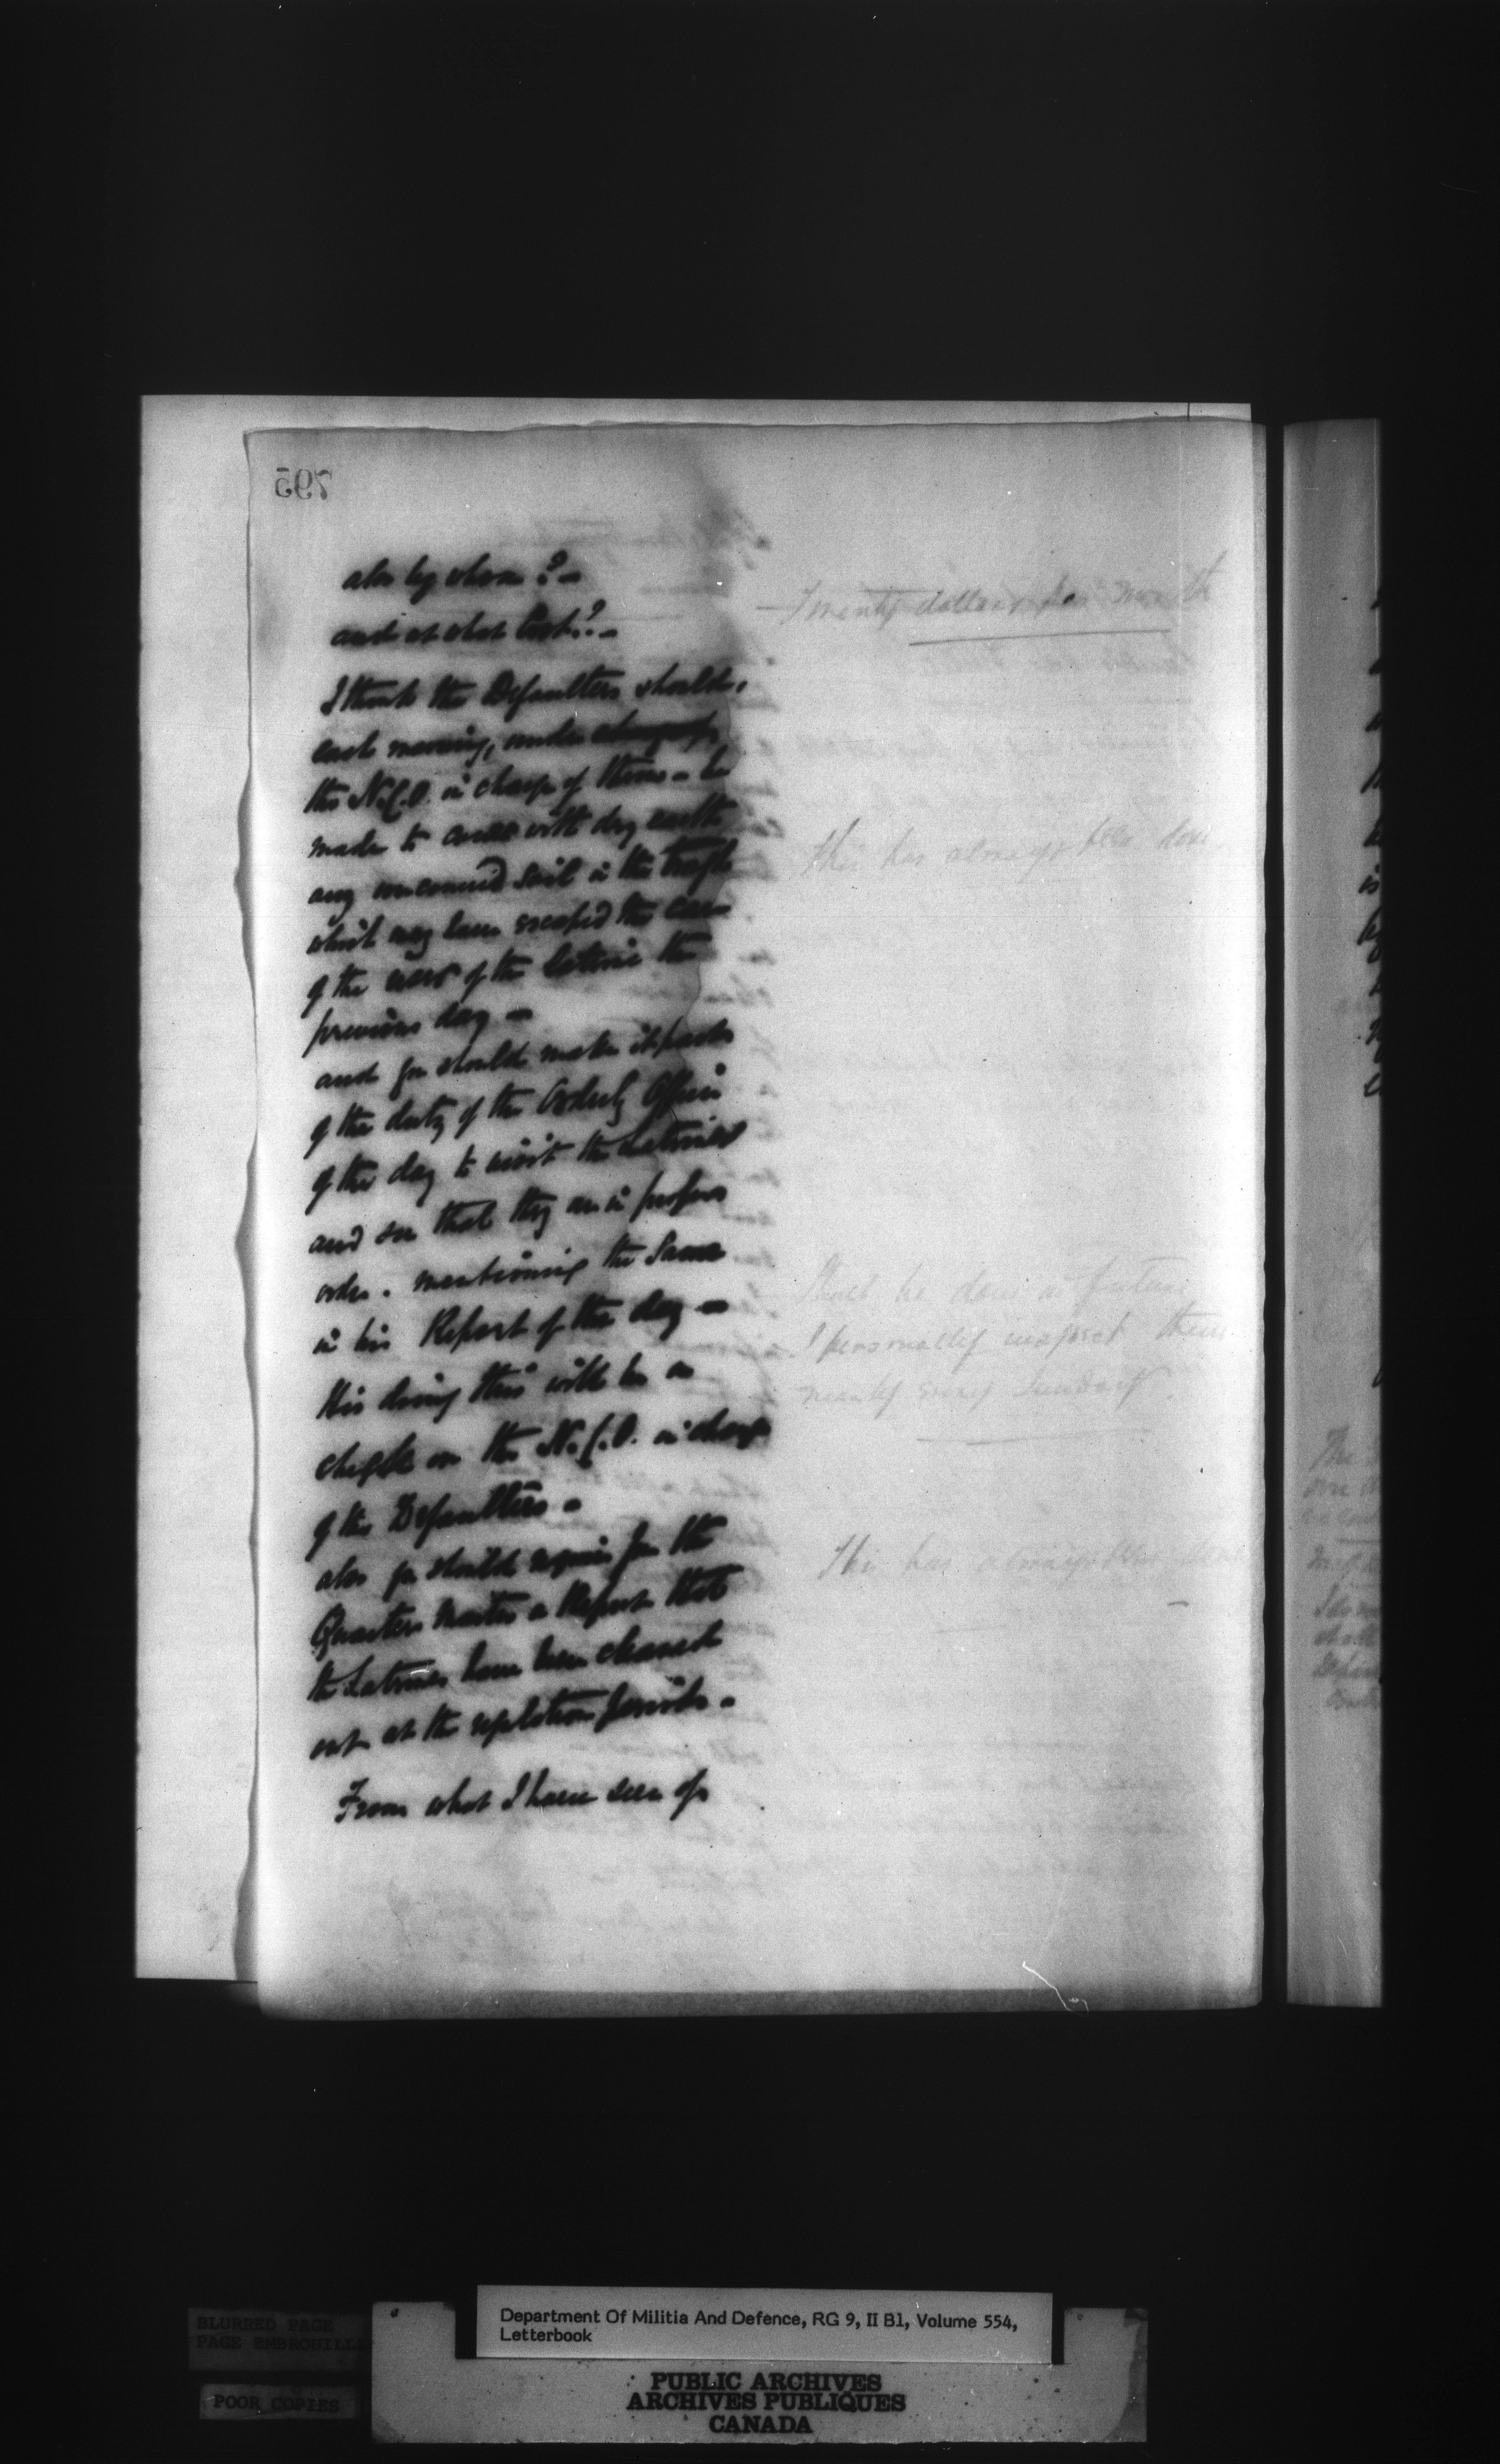 795
also by whom?—
and at what Cost?—
I think the Defaulters should,
each morning, under
the N.C.O. in charge of them — be
made to cover with dry earth
any uncovered soil in the trough
which may have escaped the care
of the users of the latrine the
previous day —
and you should make it part
of the duty of the Orderly Officer
of the day to visit the latrines
and see that they are in proper
order. mentioning the Same
in his Report of the day —
His doing this will be a
check on the N.C.O. in charge
of the Defaulters —
also you should require from the
Quarter Master a Report that
the Latrines have been cleaned
out at the regulation periods —
From what I have seen of
Twenty dollars per month
This has always been done
Shall be done in future
I personally inspect them
nearly every Sunday.
This has always been done
The
BLURRED PAGE
PAGE EMBROUILL
POOR COPIES
Department Of Militia And Defence, RG 9, II B1, Volume 554,
Letterbook
PUBLIC ARCHIVES
ARCHIVES PUBLIQUES
CANADA